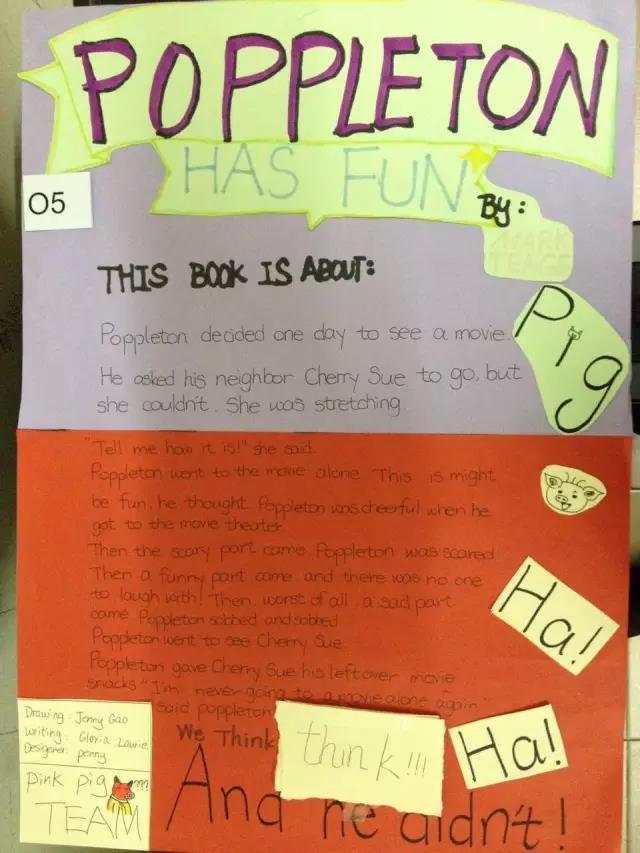 POPPLETON
HAS FUN
O5
BY:
MARK
TEAGE
THIS BOOK IS ABOUT:
Pig
Poppleton decided one day to see a movie.
He asked his neighbor Cherry Sue to go, but
she couldn't. She was stretching.
"Tell me how it is!" she said.
Poppleton went to the movie alone This is might
be fun, he thought. Poppleton was cheerful when he
got to the movie theater.
Then the scary part came. Poppleton was scared
Then a funny part came. and there was no one
to laugh with! Then worst of all a sad part
came Poppleton sobbed and sobbed
Poppleton went to see Cherry Sue
Poppleton gave Cherry Sue his leftover movie
snacks "I'm never going to a movie alone again"
said poppleton
Ha!
We Think
think!!!
Ha!
And he didn't!
Drawing: Jenny Gao
writing: Gloria, Laurie
Designer: penny
pink pig ???
TEAM